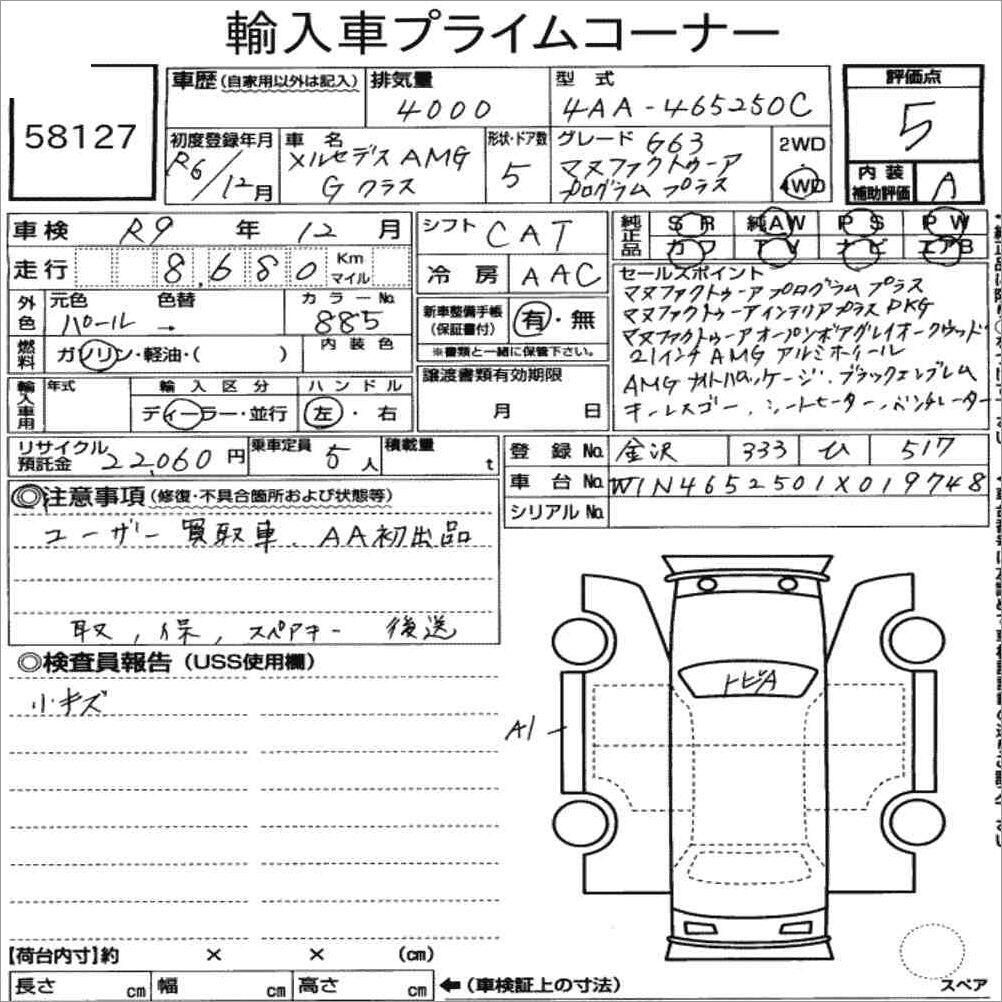 輸入車プライムコーナー
58127
車歴(自家用以外は記入)
排気量
4000
型式
4AA-465250C
評価点
5
初度登録年月
R6/12月
車名
メルセデスAMG
Gクラス
形状・ドア数
5
グレード G63
マヌファクトゥーア
プログラム プラス
2WD
・
4WD
内装
補助評価
A
車検 R9 年 12 月
シフト CAT
純正品
SR 純AW PS PW
カワ TV ナビ エアB
走行 8,680 Km
マイル
冷房 AAC
セールスポイント
マヌファクトゥーアプログラム プラス
マヌファクトゥーアインテリアプラスPKG
マヌファクトゥーアオープンポアグレイオークウッド
21インチ AMG アルミホイール
AMG ナイトパッケージ、ブラックエンブレム
キーレスゴー、シートヒーター、ベンチレーター
外色
元色 色替 カラーNo.
パール → 885
新車整備手帳
(保証書付)
有・無
※書類と一緒に保管下さい。
燃料
ガソリン・軽油・( )
内装色
輸入車用
年式
輸入区分
ディーラー・並行
ハンドル
左・右
譲渡書類有効期限
月 日
リサイクル
預託金 22,060 円
乗車定員 5人
積載量 t
登録No. 金沢 333 ひ 517
車台No. W1N4652501X019748
シリアルNo.
◎注意事項(修復・不具合箇所および状態等)
ユーザー買取車、AA初出品
取,保,スペアキー 後送
◎検査員報告(USS使用欄)
小キズ
トビA
A1
【荷台内寸】約 × × (cm)
長さ cm 幅 cm 高さ cm
←(車検証上の寸法)
スペア